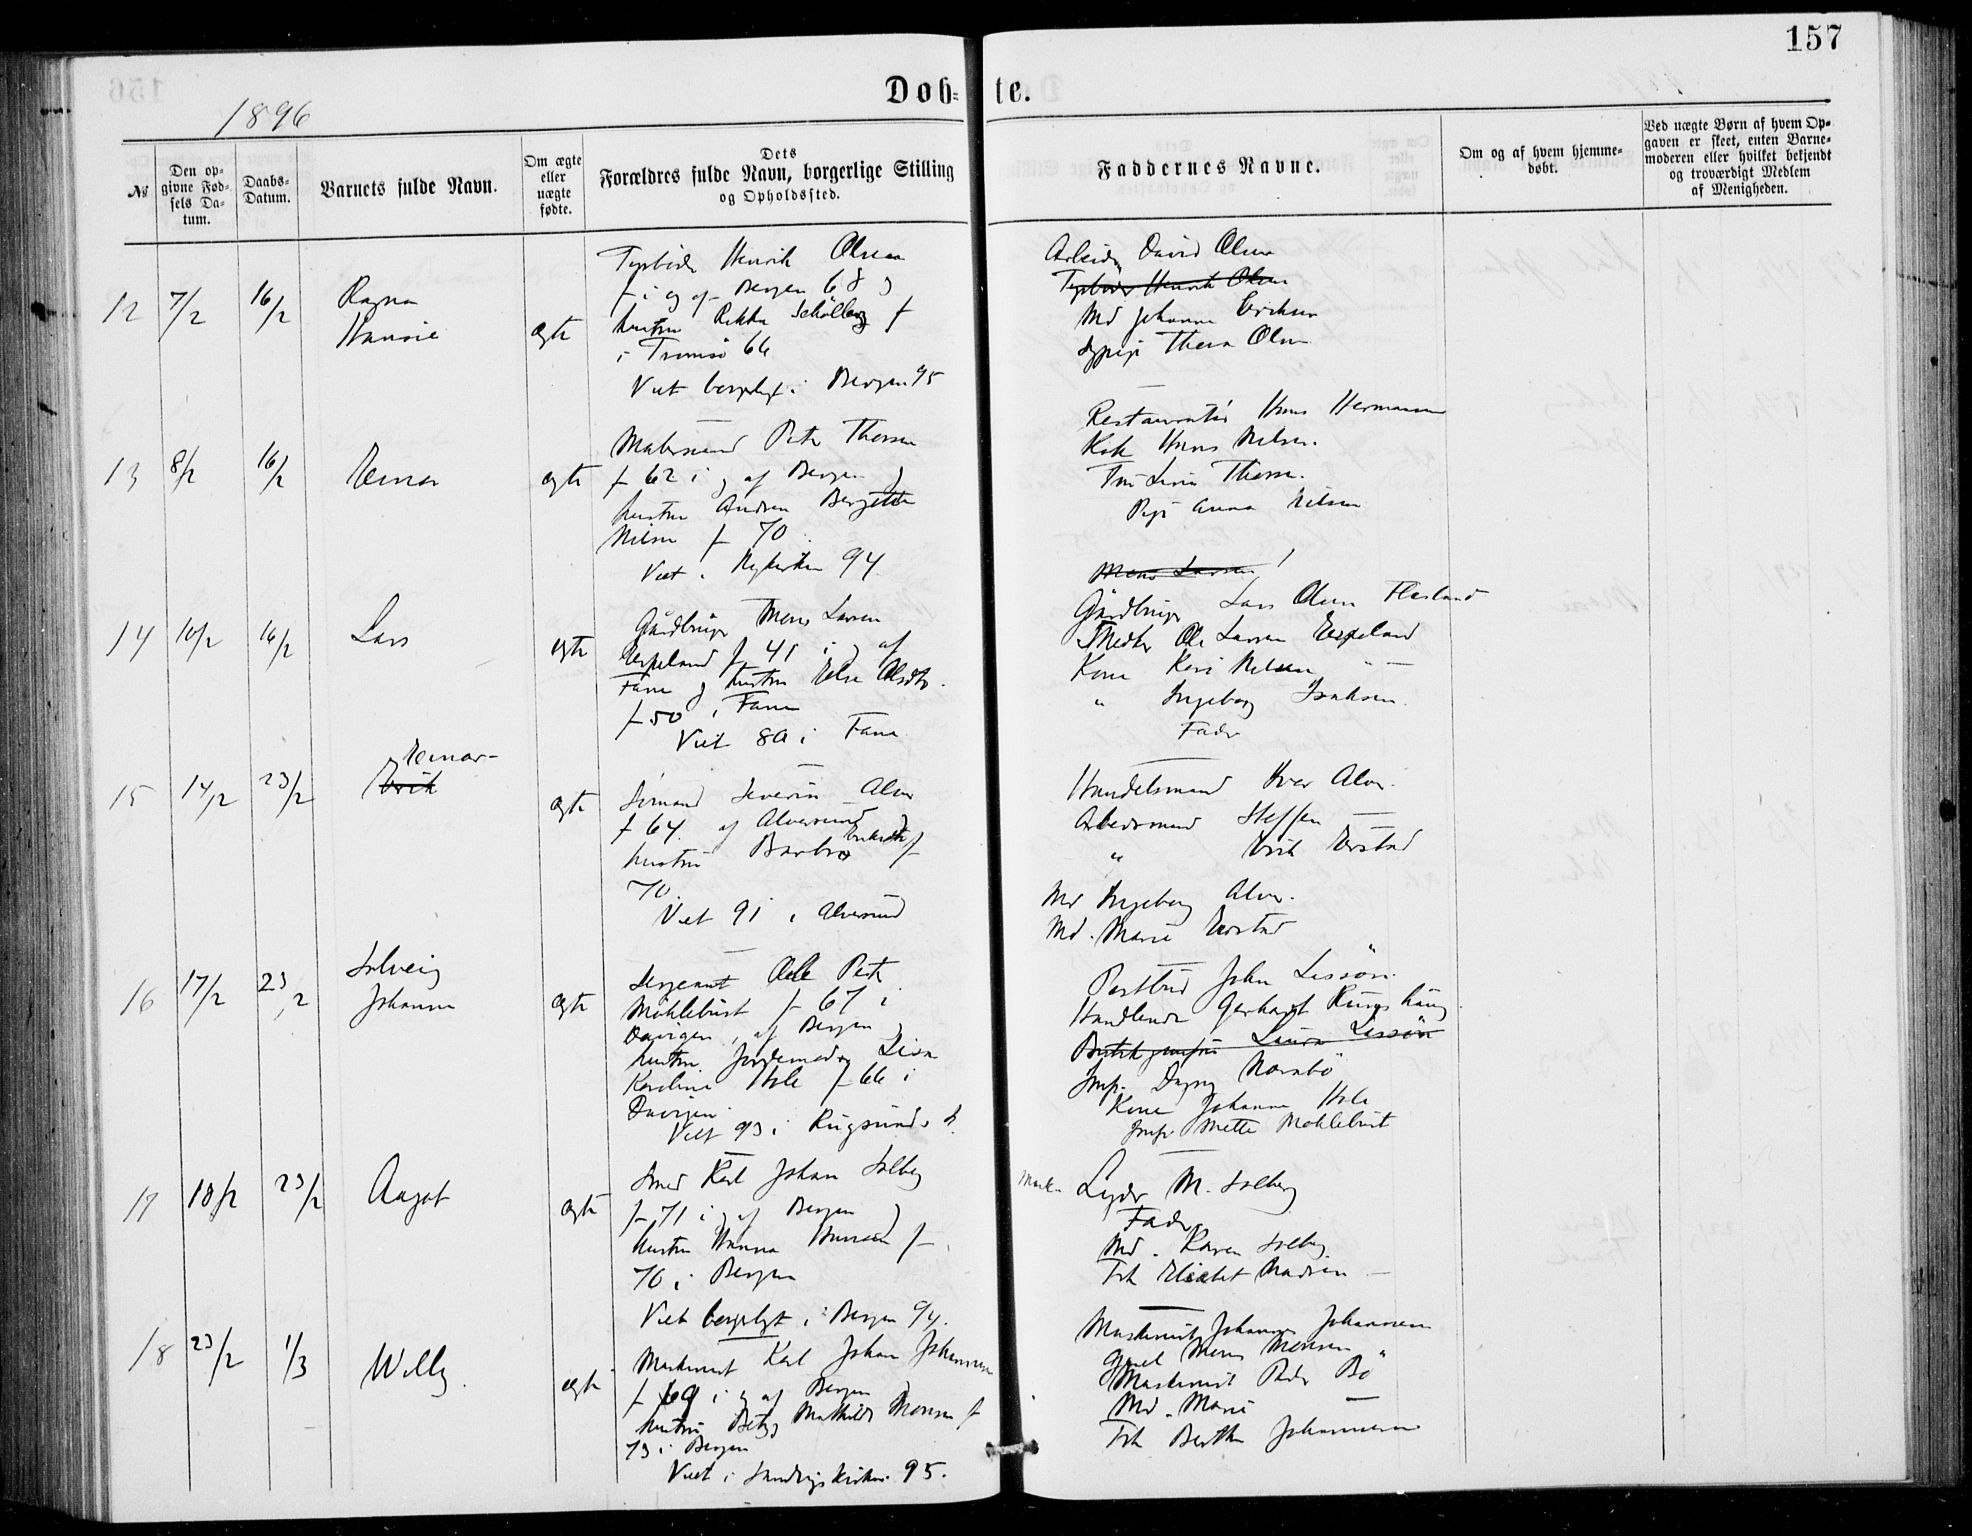 157
1896
Døb- te.
№
Den opgivne Fødsels Datum.
Daabs-Datum.
Barnets fulde Navn.
Om ægte eller uægte fødte.
Dets Forældres fulde Navn, borgerlige Stilling og Opholdssted.
Faddernes Navne.
Om og af hvem hjemmedøbt.
Ved uægte Børn af hvem Opgaven er skeet, enten Barnemoderen eller hvilket bekjendt og troværdigt Medlem af Menigheden.
12 7/2 16/2 Ragna
Hansie
ægte
Henrik Olsen
f i og af Bergen 68 og
hustru
i Tromsø 66
Viet borgerligt i Bergen 95
Arbeider David Olsen
Henrik Olsen
Md Johanne Eriksen
Sypige Thora Olsen
13 8/2 16/2 Einar
ægte
Peter Thorsen
f 62 i og af Bergen og
hustru Andrea Bergitte
Nilsen f 70
Viet i Nykirken 94
Restauratør Hans Hermansen
Kok Hans Nilsen.
Thorsen.
Pige Anna Nilsen
14 10/2 16/2 Lars
ægte
Gårdbruger Mons Larsen
Espeland f 41 i og af
Fane og hustru Else Olsdtr.
f 50 i Fane
Viet 80 i Fana
Mons Larsen
Gårdbruger Lars Olsen
Ole Larsen Espeland
Kone Kari Nilsen " —
" Ingeborg Isaksen.
Fader
15 14/2 23/2 Einar
Erik
ægte
Sømand Severin Alver
f 64 af Alversund og
hustru Barbro f
70.
Viet 91 i Alversund
Handelsmand Iver Alver.
Arbeidsmand Steffen —
" Erik Erstad
Md Ingeborg Alver.
Md. Marie Erstad
16 17/2 23/2 Solveig
Johanne
ægte
Sergeant Ole Peter
Moldebust f 67 i
Davigen, af Bergen og
hustru Jordemoder Lisa
Karoline Hole f 66 i
Davigen.
Viet 93 i Rugsunds k.
Postbud John Lessøn.
Handlende Gerhard
Laura Lessøn
Jmf. Dagny Nornbø
Kone Johanne Hole
Jmf. Mette Moldebust
17 18/2 23/2 Aagot
ægte
Smed Karl Johan Solberg
f 71 i og af Bergen og
hustru Hanna Hansen f
70 i Bergen
Viet borgerligt i Bergen 94.
Mask. Lyder M. Solberg
Fader
Md. Karen Solberg
Frk Elisabet Madsen —
18 23/2 1/3 Willy
ægte
Maskinist Karl Johan Johannesen
f 69 i og af Bergen og
hustru Betzy Mathilde Monsen f
73 i Bergen
Viet i Sandvigskirken 95.
Maskinist Johannes Johannesen
Mons Monsen
Maskinist Peder Bø
Md. Marie —
Frk Berthe Johannesen